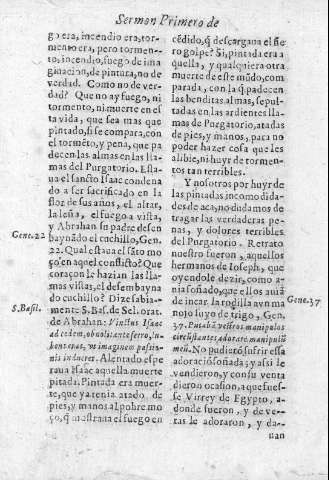 Sermon Primero de
go era, incendio era, tor-
mento era, pero tormen-
to, incendio, fuego de ima
ginacion, de pintura, no de
verdad. Como no de ver-
dad? Que no ay fuego, ni
tormento, ni muerte en es
ta vida, que sea mas que
pintado, si se compara, con
el tormẽto, y pena, que pa
decen las almas en las lla-
mas del Purgatorio. Esta-
ua el sancto Isaac condena
do a ser sacrificado en la
flor de sus años, el altar,
la leña, el fuego a vista,
y Abrahan su padre desen
baynãdo el cuchillo, Gen.
22. Qual estaua el sãto mo
ço en aquel conflicto? Que
coraçon le hazian las lla-
mas vistas, el desembayna
do cuchillo? Dize sabia-
mente S. Bas. de Sel. orat.
de Abrahan: Vinctus Isaac
ad cedem,
pitada. Pintada era muer-
te, que ya tenia atado de
pies, y manos al pobre mo
ço, q̃ mostraua el fuego en
Gene. 22
S. Basil.
cẽdido, q̃ descargaua el fie
ro golpe? Si, pintada era a
quella, y qualquiera otra
muerte de este mũdo, com
parada, con la q̃ padecen
las benditas almas, sepul-
tadas en las ardientes lla-
mas de Purgatorio, atadas
de pies, y manos, para no
poder hazer cosa que les
alibie, ni huyr de tormen-
tos tan terribles.
Y nosotros por huyr de
las pintadas incomodida-
des de aca, no dudamos de
tragar las verdaderas pe-
nas, y dolores terribles
del Purgatorio. Retrato
nuestro fueron, aquellos
hermanos de Ioseph, que
oyendole dezir, como a-
uia soñado, que ellos auiã
de incar la rodilla a vn ma
nojo suyo de trigo, Gen.
37. Putabã vestros manipulos
circũstantes, adorare manipulũ
meũ. No pudierõ sufrir essa
adoraciõ soñada; y assi le
vendieron, y con su venta
dieron ocasion, a que fues-
se Virrey de Egypto, a-
donde fueron, y de ve-
ras le adoraron, y da-
uan
Gene. 37